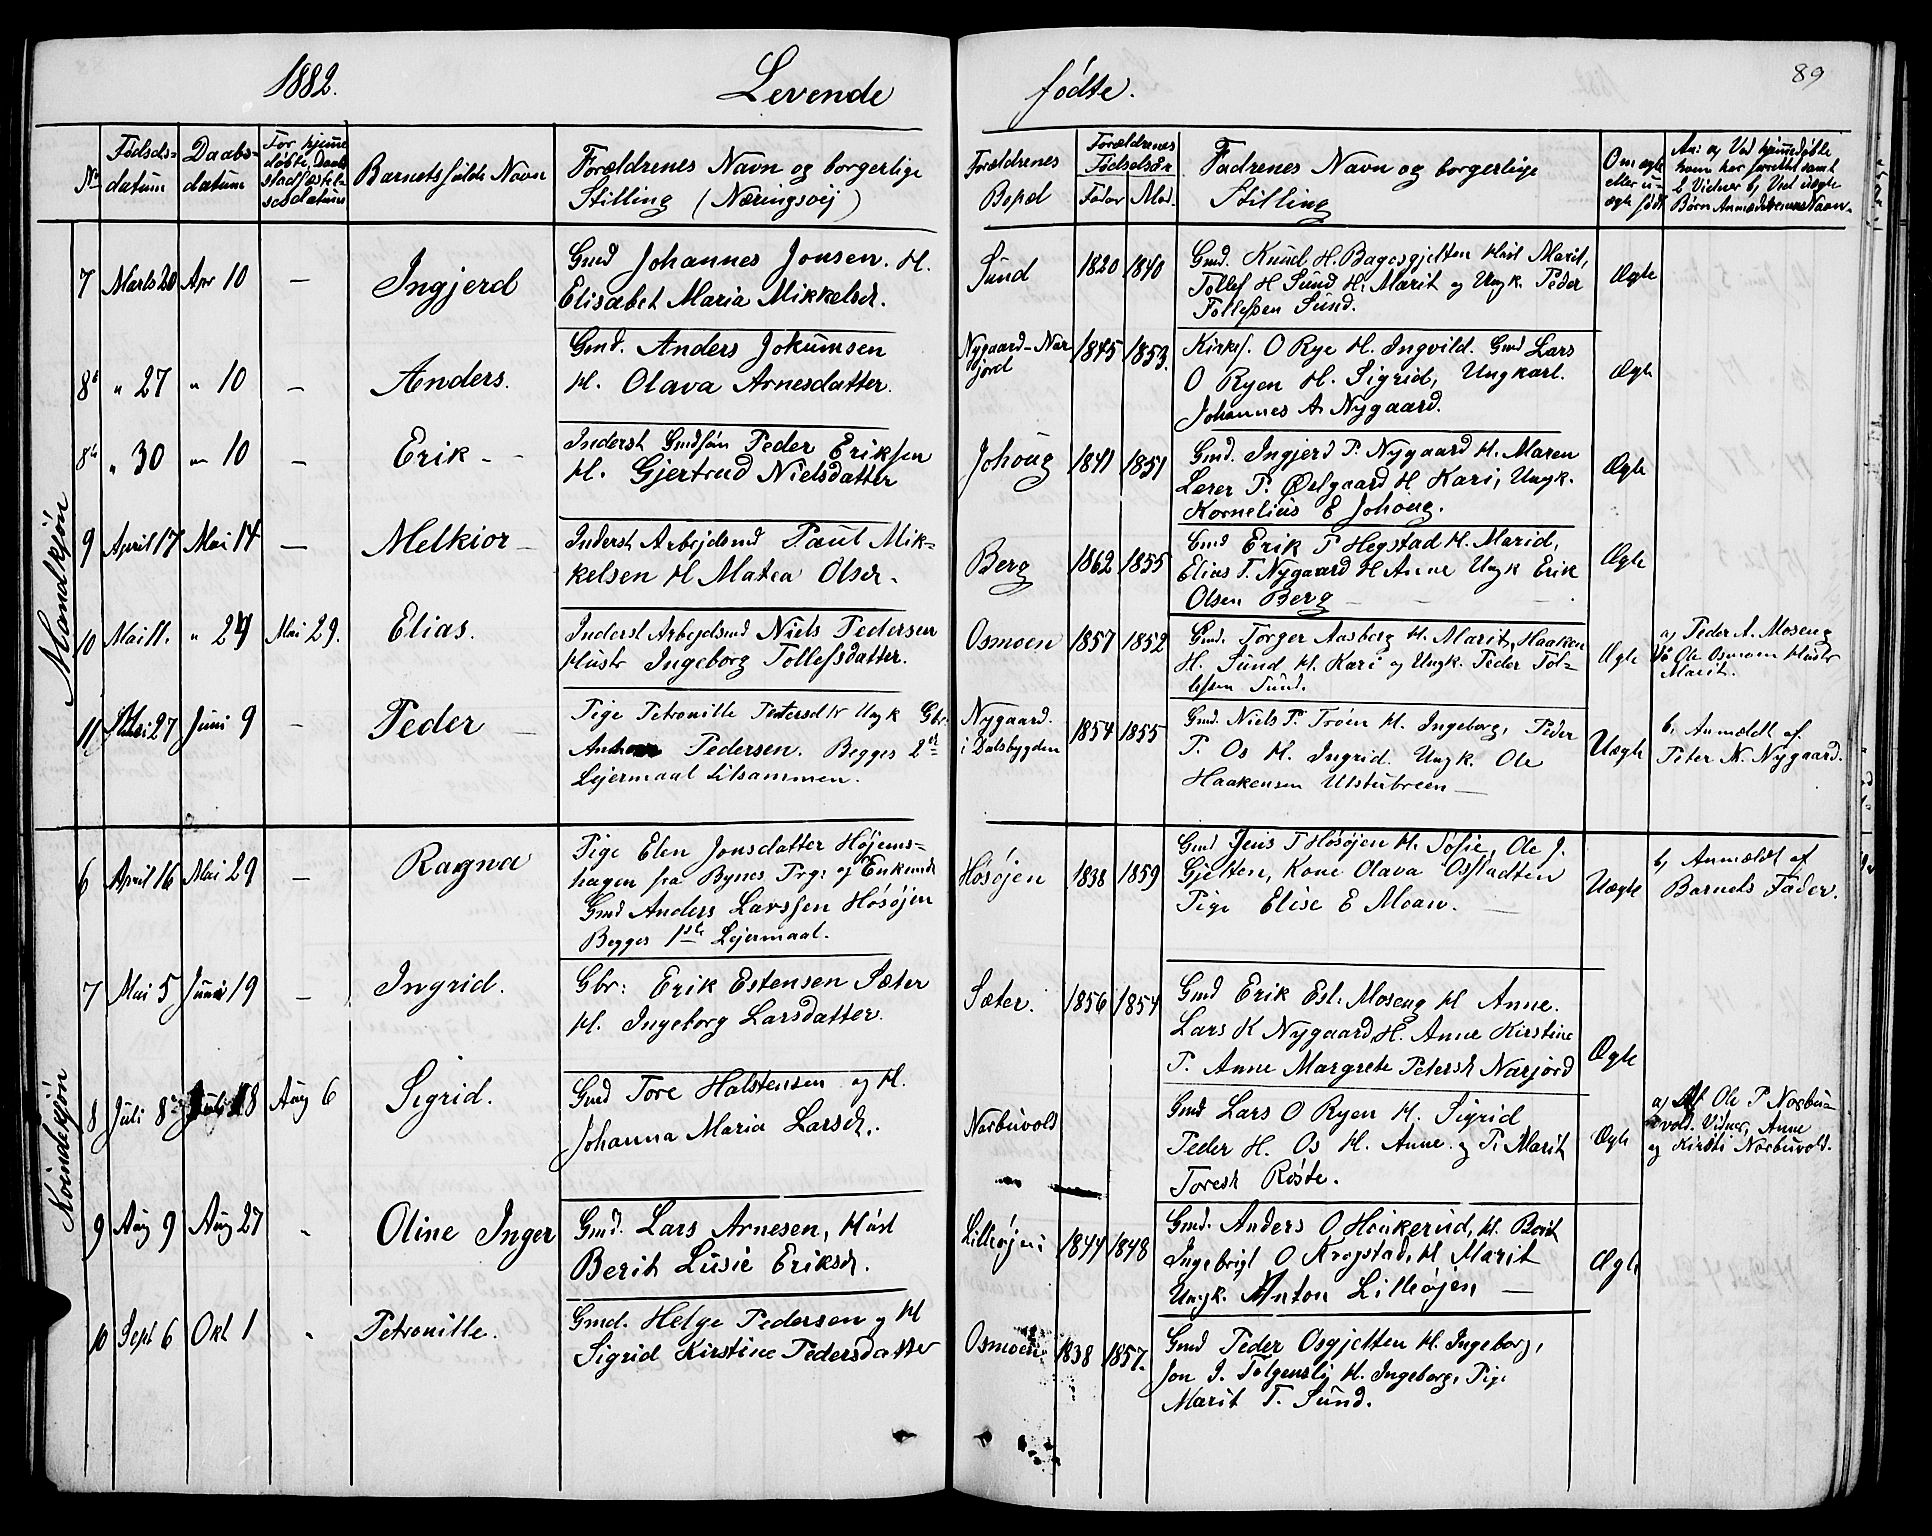 1882. Levende fødte. 89
No Fødsels-datum Daabs-datum For hjemme døbte Daabs stadfæstel-sesdatum Barnets fulde Navn Forældrenes Navn og borgerlige Stilling (Næringsvej)
Forældrenes Bopæl Forældrenes Fødselsår Fader Mod. Fadrenes Navn og borgerlige Stilling Om ægte eller u-ægte født
Mandkjøn
7 Marts 20 Apr 10 — Ingjerd
Gmd Johannes Jonsen. H.
Elisabet Maria Mikkelsdr.
Sund 1820 1840
Gmd. Knud H. Bagosgjelten Hust Marit,
Tollef H Sund H. Marit og Ungk. Peder
Tollefsen Sund.
Ægte
8a " 27 " 10 — Anders.
Gmd. Anders Jokumsen
H. Olava Arnesdatter.
Nygaard-Nar
jord 1845 1853.
Kirkes. O Rye H. Ingvild. Gmd Lars
O Ryen H. Sigrid, Ungkarl.
Johannes A. Nygaard.
Ægte
8b " 30 " 10 — Erik - -
Inderst Gmdsøn Peder Eriksen
H. Gjertrud Nielsdatter
Johoug 1841 1851
Gmd. Ingjerd P. Nygaard H. Maren
Lærer P. Ørsgaard H Kari, Ungk.
Kornelius E Johoug.
Ægte
9 April 17 Mai 14 — Melkior —
Inderst Arbejdsmd Paul Mik-
kelsen H Matea Olsdr.
Berg 1862 1855
Gmd Erik P Hegstad H. Marid,
Elias T. Nygaard H Anne Ungk Erik
Olsen Berg — — —
Ægte
10 Mai 11. " 29 Mai 29. Elias.
Inderst Arbejdsmd Niels Pedersen
Hustr Ingeborg Tollefsdatter.
Osmoen 1857 1852
Gmd. Torger Aasberg H. Marit, Haaken
H. Sund H. Kari og Ungk. Peder Tol-
lefsen Sund.
Ægte
a, Peder A. Moseng
Ole Osmoen Hustr
Marit.
11 Mai 27 Juni 9 — Peder —
Pige Petronille Pedersdtr Ungk Gbr.
Pedersen. Begges 2det
Lejermaal tilsammen.
Nygaard.
i Dalsbygden 1854 1855
Gmd. Niels P. Trøen H. Ingeborg, Peder
P. Os H. Ingrid. Ungk. Ole
Haakensen Utstubreen —
Uægte
b, Anmældt af
Peter N. Nygaard.
Kvindekjøn
6 April 16 Mai 29 — Ragna
Pige Elen Jonsdatter Højems-
hagen fra Bynes Prg: og Enkemd
Gmd Anders Larssen Høsøjen
Begges 1ste Lejermaal.
Høsøjen 1838 1859
Gmd Jens P Høsøjen H. Sofie, Ole J.
Gjelten, Kone Olava Osstadten
Pige Elise E Moan. —
Uægte
b, Anmældt af
Barnets Fader.
7 Mai 5 Juni 19 — Ingrid.
Gbr: Erik Estensen Sæter
H. Ingeborg Larsdatter.
Sæter. 1856 1854
Gmd Erik Est. Moseng H Anne.
Lars K Nygaard H. Anne Kirstine
P. Anne Margrete Petersdr Narjord
Ægte
8 Juli 8 Juli 18 Aug 6 Sigrid.
Gmd Tore Halstensen og H.
Johanna Maria Larsdr.
Narbuvold
Gmd Lars O Ryen H. Sigrid
Peder H. Os H. Anne. og P. Marit
Toresdr Røste.
Ægte
a, Af Ole P Narbu-
vold. Vidner, Anne
og Kirsti Narbuvold.
9 Aug 9 Aug 27 - Oline Inger
Gmd. Lars Arnesen, Hust
Berit Lusie Eriksdr.
Lilleøjen 1844 1848
Gmd. Anders O Honkerud, H. Berit
Ingebrigt O Krogstad, H Marit
Ungk. Anton Lilleøjen —
Ægte
10 Sept 6 Okt 1 - Petronille.
Gmd. Helge Pedersen og H
Sigrid Kirstine Pedersdatter
Osmoen 1838 1857.
Gmd Peder Osgjelten H. Ingeborg,
Jon J. Tolgensli H. Ingeborg, Pige
Marit T. Sund.